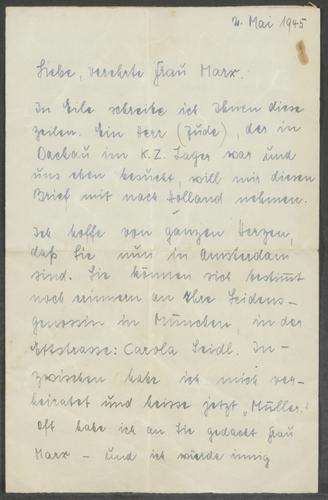 2. Mai 1945
Liebe, verehrte Frau Marx.
In Eile schreibe ich Ihnen diese
Zeilen. Ein Herr (Jude), der in
Dachau im K.Z. Lager war und
uns eben besucht, will mir diesen
Brief mit nach Holland nehmen.
Ich hoffe von ganzen Herzen,
daß Sie nun in Amsterdam
sind. Sie können sich bestimmt
noch erinnern an Ihre Leidens-
genossin in München, in der
Ettstrasse: Carola Seidl. In-
zwischen habe ich mich ver-
heiratet und heisse jetzt „Müller.“
Oft habe ich an Sie gedacht Frau
Marx – und ich würde innig